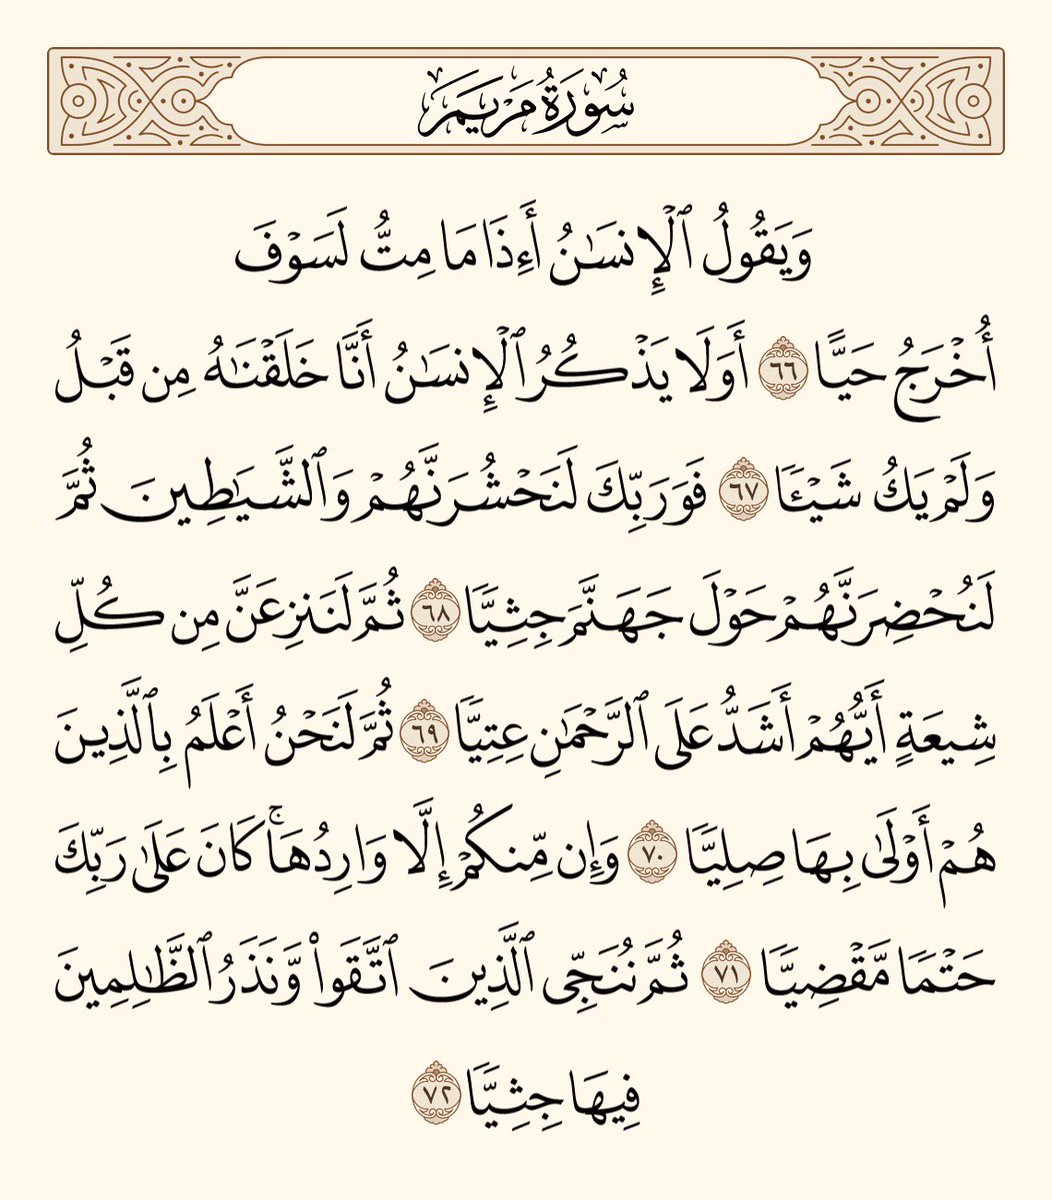 سُورَةُ مَرۡيَمَ
وَيَقُولُ ٱلۡإِنسَٰنُ أَءِذَا مَا مِتُّ لَسَوۡفَ
أُخۡرَجُ حَيًّا ٦٦ أَوَلَا يَذۡكُرُ ٱلۡإِنسَٰنُ أَنَّا خَلَقۡنَٰهُ مِن قَبۡلُ
وَلَمۡ يَكُ شَيۡـٔٗا ٦٧ فَوَرَبِّكَ لَنَحۡشُرَنَّهُمۡ وَٱلشَّيَٰطِينَ ثُمَّ
لَنُحۡضِرَنَّهُمۡ حَوۡلَ جَهَنَّمَ جِثِيّٗا ٦٨ ثُمَّ لَنَنزِعَنَّ مِن كُلِّ
شِيعَةٍ أَيُّهُمۡ أَشَدُّ عَلَى ٱلرَّحۡمَٰنِ عِتِيّٗا ٦٩ ثُمَّ لَنَحۡنُ أَعۡلَمُ بِٱلَّذِينَ
هُمۡ أَوۡلَىٰ بِهَا صِلِيّٗا ٧٠ وَإِن مِّنكُمۡ إِلَّا وَارِدُهَاۚ كَانَ عَلَىٰ رَبِّكَ
حَتۡمٗا مَّقۡضِيّٗا ٧١ ثُمَّ نُنَجِّي ٱلَّذِينَ ٱتَّقَواْ وَّنَذَرُ ٱلظَّٰلِمِينَ
فِيهَا جِثِيّٗا ٧٢